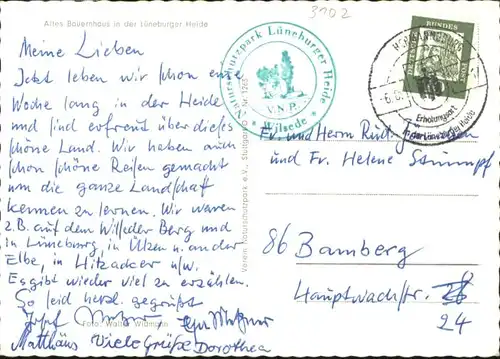 3102
Altes Bauernhaus in der Lüneburger Heide
Meine Lieben
Jetzt leben wir schon eine
Woche lang in der Heide
und sind erfreut über dieses
schöne Land. Wir haben auch
schon schöne Reisen gemacht
um die ganze Landschaft
kennen zu lernen. Wir waren
z.B. auf dem Wilseder Berg und
in Lüneburg, in Ülzen u. an der
Elbe, in Hitzacker usw.
Es gibt wieder viel zu erzählen.
So seid herzl. gegrüßt
Josef
Foto: Walter Wißmann
Matthäus Viele Grüße Dorothea
Verein Naturschutzpark e.V., Stuttgart
Naturschutzpark Lüneburger Heide
V.N.P.
Wilsede
BUNDES
Erholungsort
in der Lüneburger Heide
Fr. und Herrn
und Fr. Helene Stumpf
86 Bamberg
Hauptwachstr.
24